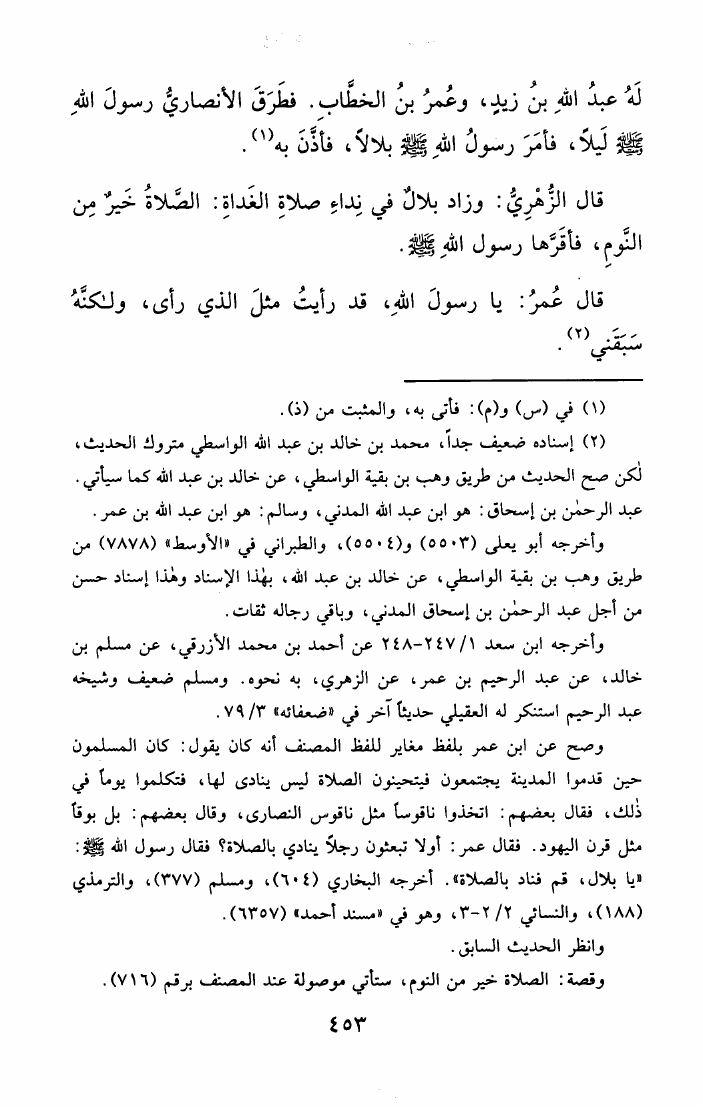 لَهُ عبدُ اللهِ بنُ زيدٍ، وعُمرُ بنُ الخطَّابِ. فطَرَقَ الأنصاريُّ رسولَ اللهِ
ﷺ لَيلاً، فأمَرَ رسولُ اللهِ ﷺ بلالاً، فأذَّنَ به(١).
قال الزُّهْرِيُّ: وزاد بلالٌ في نِداءِ صلاةِ الغَداةِ: الصَّلاةُ خَيرٌ مِن
النَّومِ، فأقَرَّها رسول اللهِ ﷺ.
قال عُمرُ: يا رسولَ اللهِ، قد رأيتُ مثلَ الذي رأى، ولكنَّهُ
سَبَقَني(٢).
(١) في (س) و(م): فأتى به، والمثبت من (ذ).
(٢) إسناده ضعيف جداً، محمد بن خالد بن عبد الله الواسطي متروك الحديث،
لٰكن صح الحديث من طريق وهب بن بقية الواسطي، عن خالد بن عبد الله كما سيأتي.
عبد الرحمٰن بن إسحاق: هو ابن عبد الله المدني، وسالم: هو ابن عبد الله بن عمر.
وأخرجه أبو يعلى (٥٥٠٣) و(٥٥٠٤)، والطبراني في «الأوسط» (٧٨٧٨) من
طريق وهب بن بقية الواسطي، عن خالد بن عبد الله، بهٰذا الإسناد وهٰذا إسناد حسن
من أجل عبد الرحمٰن بن إسحاق المدني، وباقي رجاله ثقات.
وأخرجه ابن سعد ٢٤٧/١-٢٤٨ عن أحمد بن محمد الأزرقي، عن مسلم بن
خالد، عن عبد الرحيم بن عمر، عن الزهري، به نحوه. ومسلم ضعيف وشيخه
عبد الرحيم استنكر له العقيلي حديثاً آخر في «ضعفائه» ٧٩/٣.
وصح عن ابن عمر بلفظ مغاير للفظ المصنف أنه كان يقول: كان المسلمون
حين قدموا المدينة يجتمعون فيتحينون الصلاة ليس ينادى لها، فتكلموا يوماً في
ذٰلك، فقال بعضهم: اتخذوا ناقوساً مثل ناقوس النصارى، وقال بعضهم: بل بوقاً
مثل قرن اليهود. فقال عمر: أولا تبعثون رجلاً ينادي بالصلاة؟ فقال رسول الله ﷺ:
«يا بلال، قم فناد بالصلاة». أخرجه البخاري (٦٠٤)، ومسلم (٣٧٧)، والترمذي
(١٨٨)، والنسائي ٢/٢-٣، وهو في «مسند أحمد» (٦٣٥٧).
وانظر الحديث السابق.
وقصة: الصلاة خير من النوم، ستأتي موصولة عند المصنف برقم (٧١٦).
٤٥٣